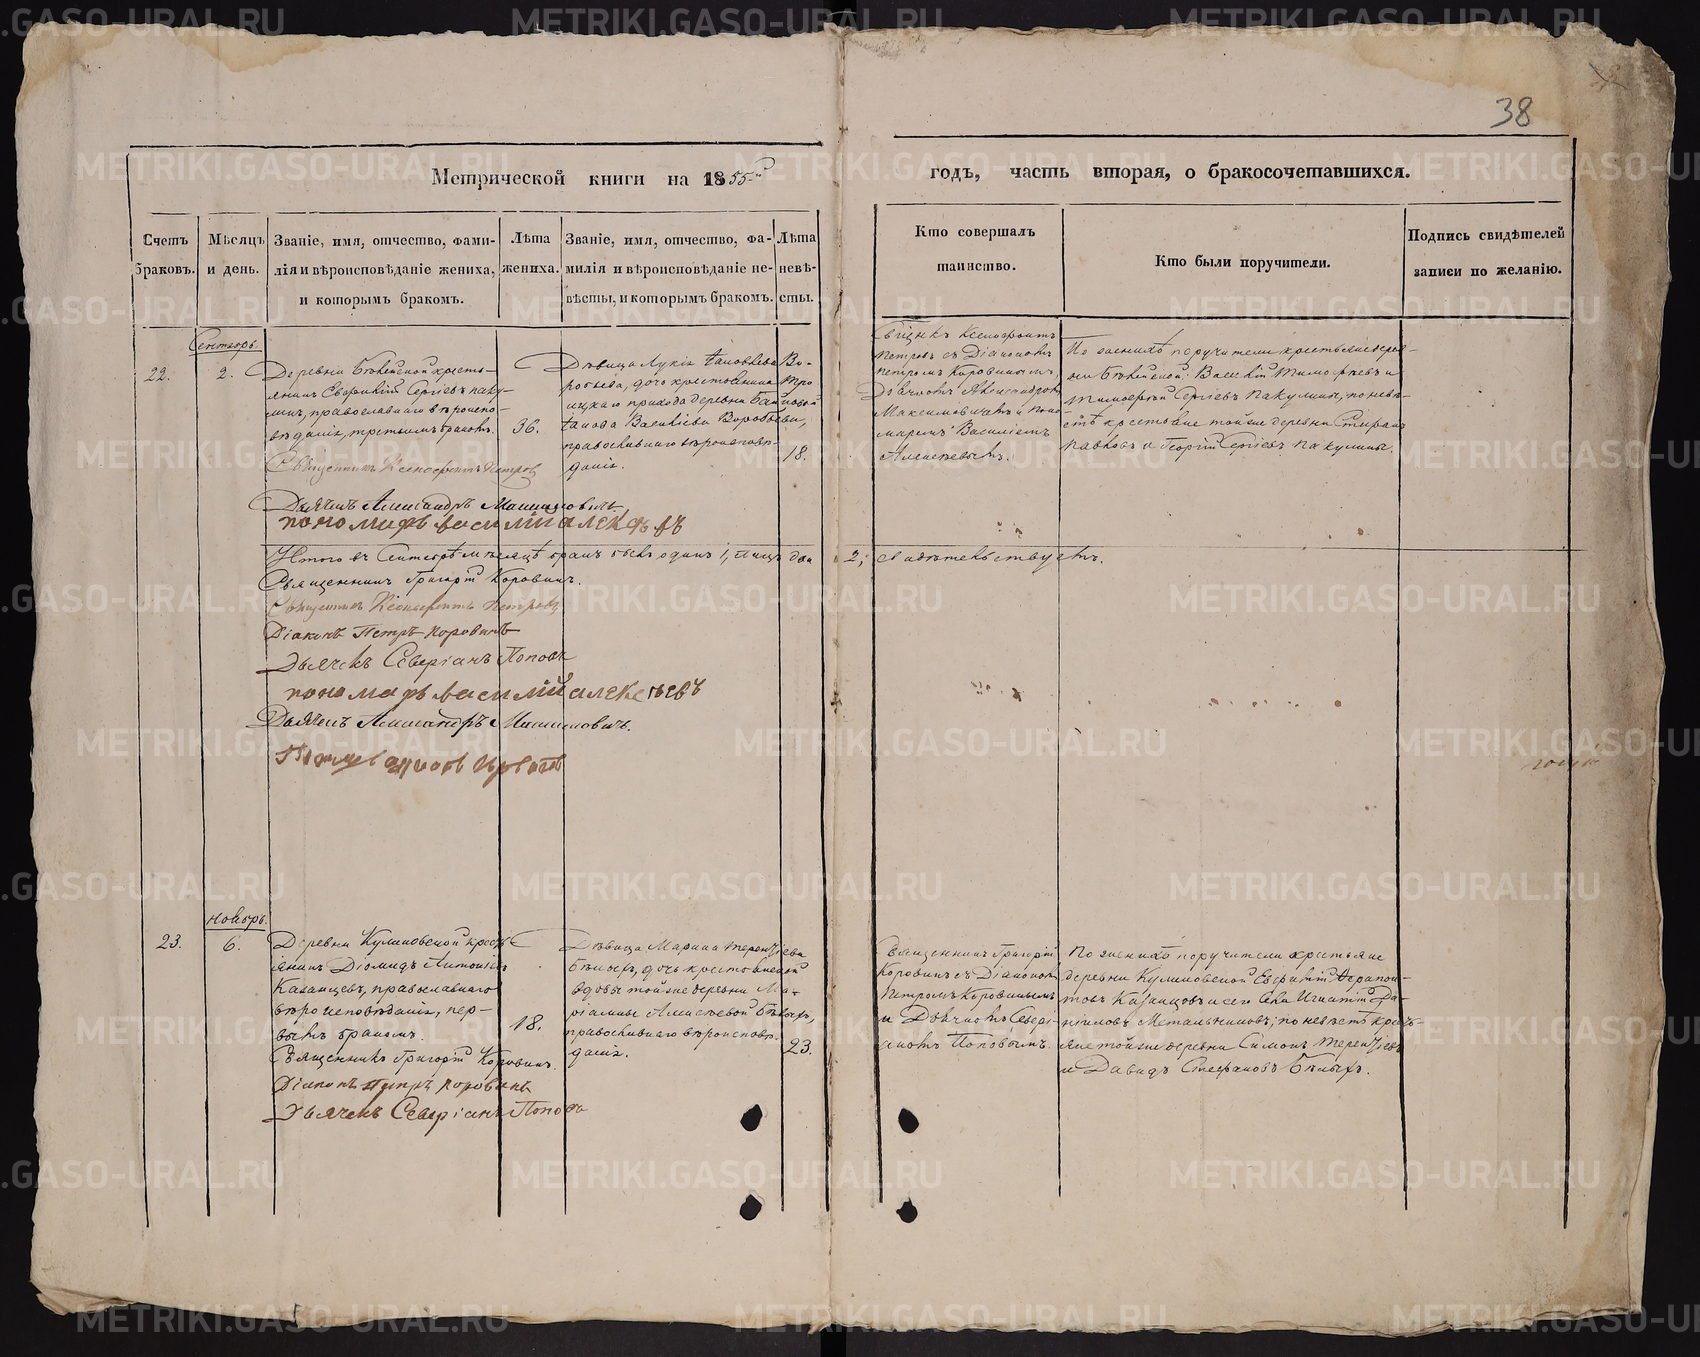 38
Метрической книги на 1855й
годъ, часть вторая, о бракосочетавшихся.
Счетъ браковъ.
Мѣсяцъ и день.
Званіе, имя, отчество, фами-
лія и вѣроисповѣданіе жениха,
и которымъ бракомъ.
Лѣта
жениха.
Званіе, имя, отчество, фа-
милія и вѣроисповѣданіе не-
вѣсты, и которымъ бракомъ.
Лѣта
невѣ-
сты.
Кто совершалъ
таинство.
Кто были поручители.
Подпись свидѣтелей
записи по желанію.
Сентябрь.
22.
2.
Деревни крестья-
янинъ Сергіевъ Паку-
линъ, православнаго вѣроиспо-
вѣданія, третьимъ бракомъ.
36.
Дѣвица Лукія Іаковлева Во-
робьева, дочь крестьянина Тро-
ицкаго прихода деревни
Іакова Василіева Воробьева,
православнаго вѣроисповѣ-
данія.
18.
Священникъ Ксенофонтъ
Петровъ съ Діакономъ
Петромъ Коровинымъ,
Дьячкомъ Александромъ
Максимовичемъ и поно-
маремъ Василіемъ
Алексѣевымъ.
По женихѣ поручители крестьяне дерев-
ни Василій Тимоѳеевъ и
Тимоѳей Сергіевъ Пакулины, по невѣ-
стѣ крестьяне тойже деревни
и Георгій Сергіевъ Пакулины.
Священникъ Ксенофонтъ Петровъ
Дьячекъ Александръ Максимовичъ
пономарь василій алекѣевъ
Итого въ Сентябрѣ мѣсяцѣ бракъ былъ одинъ 1, лицъ два 2; свидѣтельствуетъ.
Священникъ Григорій Коровинъ.
Священникъ Ксенофонтъ Петровъ
Діаконъ Петръ Коровинъ
Дьячекъ Северіанъ Поповъ
пономарь василій алексѣевъ
Дьячекъ Александръ Максимовичъ.
Ноябрь.
23.
6.
Деревни Куликовской кресть-
янинъ Діомидъ Антоніевъ
Казанцевъ, православнаго
вѣроисповѣданія, пер-
вымъ бракомъ.
18.
Дѣвица Марина Терентіева
Бѣлыхъ, дочь крестьянской
вдовы тойже деревни Ма-
ріамны Алексѣевой Бѣлыхъ,
православнаго вѣроисповѣ-
данія.
23.
Священникъ Григорій
Коровинъ съ Діакономъ
Петромъ Коровинымъ
и Дьячкомъ Севері-
аномъ Поповымъ.
По женихѣ поручители крестьяне
деревни Куликовской Евѳимій Ферапон-
товъ Казанцовъ и села Игнатій Да-
ніиловъ Метальниковъ; по невѣстѣ кресть-
яне тойже деревни Симонъ Терентіевъ
и Давидъ Стефановъ Бѣлыхъ.
Священникъ Григорій Коровинъ.
Діаконъ Петръ Коровинъ
Дьячекъ Северіанъ Поповъ
METRIKI.GASO-URAL.RU